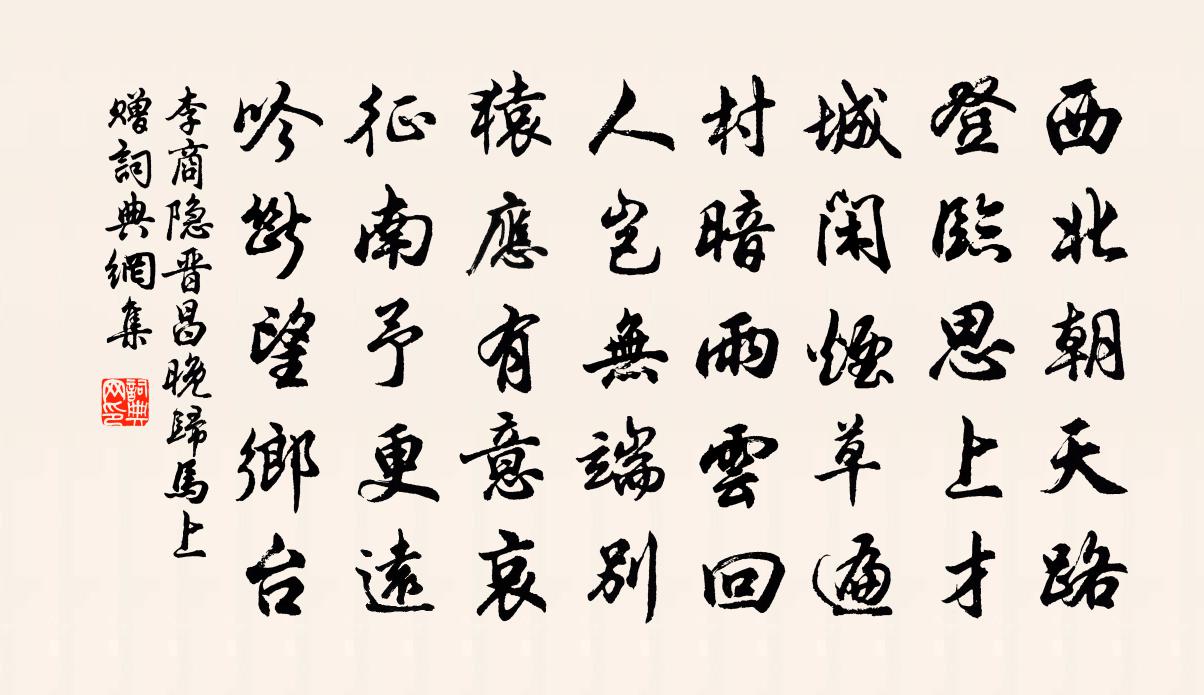 西北朝天路
登臨思上才
城閑煙草遍
村暗雨雲回
人豈無端別
猿應有意哀
征南予更遠
吟斷望鄉台
李商隐晋昌晚歸馬上
赠詞典網集
詞典
网印